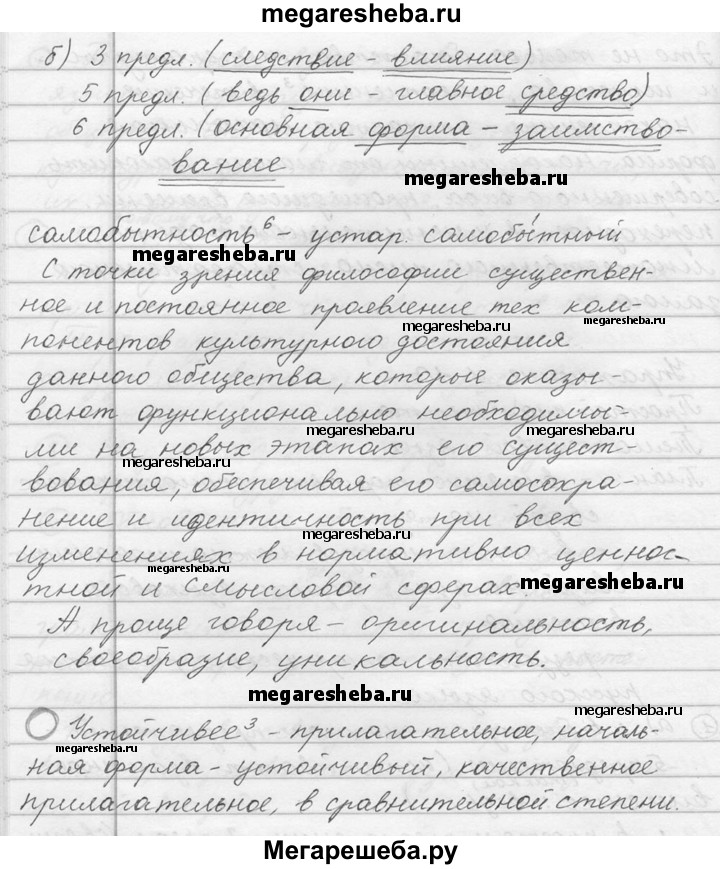 megaresheba.ru
б) 3 предл. (следствие - влияние)
5 предл. (ведь они - главное средство)
6 предл. (основная форма - заимство-
вание
megaresheba.ru
самобытность⁶ - устар. самобы́тный
megaresheba.ru
С точки зрения философии существен-
ное и постоянное проявление тех ком-
megaresheba.ru
megaresheba.ru
понентов культурного достояния
данного общества, которые оказы-
вают функционально необходимы-
ми на новых этапах его сущест-
megaresheba.ru
вования, обеспечивая его самосохра-
нение и идентичность при всех
изменениях в нормативно ценнос-
megaresheba.ru
тной и смысловой сферах.
megaresheba.ru
А проще говоря - оригинальность,
своеобразие, уникальность.
megaresheba.ru
megaresheba.ru
Устойчивее³ - прилагательное, началь-
megaresheba.ru
ная форма - устойчивый, качественное
прилагательное, в сравнительной степени.
Мегарешеба.ру